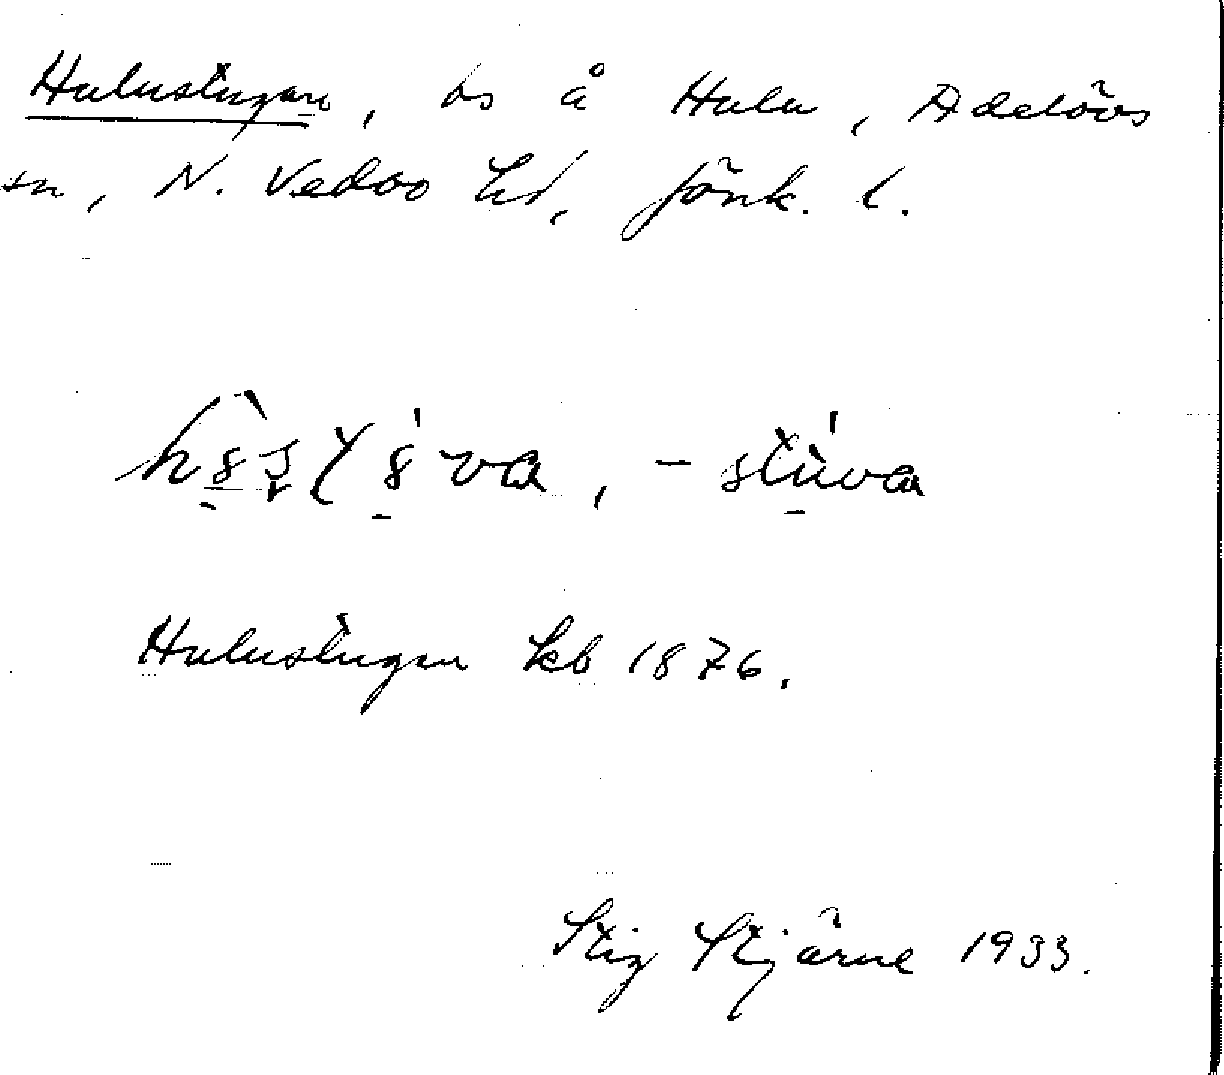 Hulustugan, bs å Hulu, Adelövs
sn, N. Vedbo hd, Jönk. l.
-stuva
Hulustugan kb 1876.
Stig Stjärne 1933.